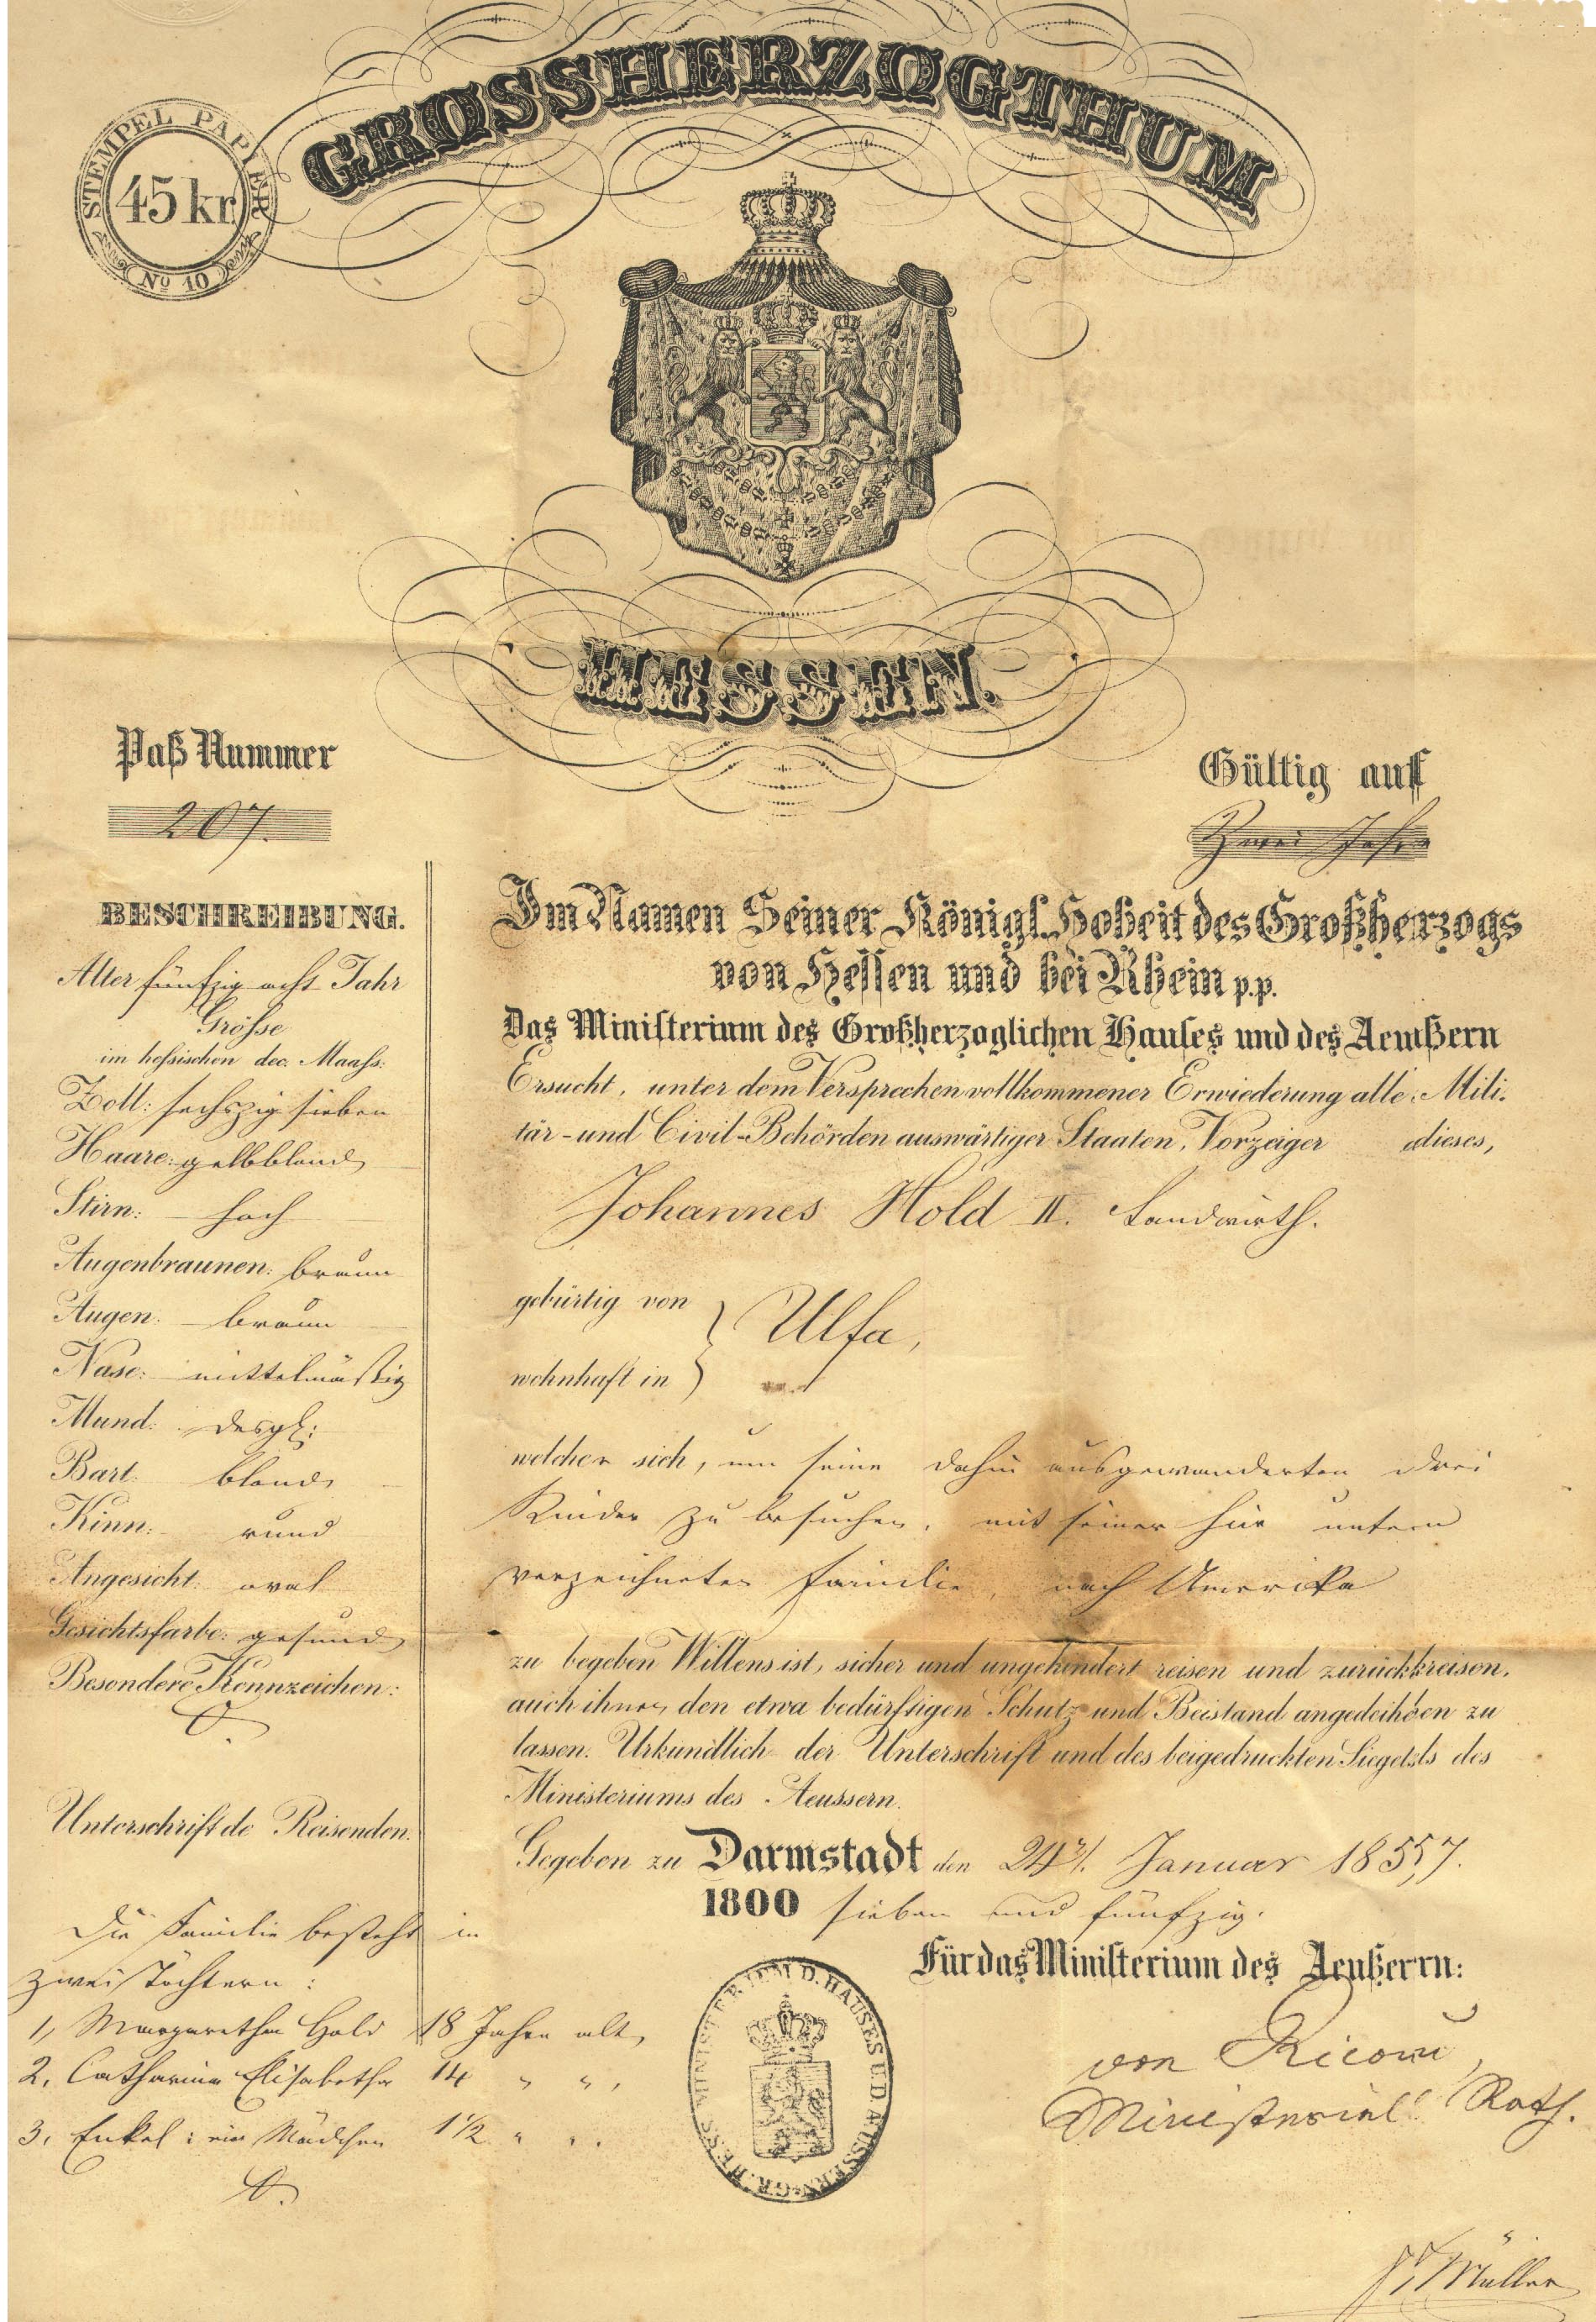 GROSSHERZOGTHUM
STEMPEL PAPIER
45 kr
No 10
HESSEN.
Paß Nummer
207.
Gültig auf
Zwei Jahre
BESCHREIBUNG.
Alter fünfzig acht Jahr
Grösse
im hessischen dec. Maass:
Zoll: sechszig sieben
Haare: gelbblond
Stirn: hoch
Augenbraunen: braun
Augen: braun
Nase: mittelmäßig
Mund: desgl:
Bart: blond
Kinn: rund
Angesicht: oval
Gesichtsfarbe: gesund
Besondere Kennzeichen:
Unterschrift de Reisenden.
Im Namen Seiner Königl. Hoheit des Großherzogs
von Hessen und bei Rhein p.p.
Das Ministerium des Großherzoglichen Hauses und des Aeußern
Ersucht, unter dem Versprechen vollkommener Erwiederung alle Mili-
tär- und Civil-Behörden auswärtiger Staaten, Vorzeiger dieses,
Johannes Hold II. Landwirth.
gebürtig von
wohnhaft in
Ulfa,
welcher sich, um seine dahin ausgewanderten drei
Kinder zu besuchen, mit seiner hier unten
verzeichneten Familie, nach Amerika
zu begeben Willens ist, sicher und ungehindert reisen und zurückreisen,
auch ihnen den etwa bedürftigen Schutz und Beistand angedeihen zu
lassen. Urkundlich der Unterschrift und des beigedruckten Siegels des
Ministeriums des Aeussern.
Gegeben zu Darmstadt den Januar 1857.
1800 sieben und fünfzig.
Für das Ministerium des Aeußerrn:
von
Ministerial Rath.
Müller
Die Familie besteht in
zwei Töchtern:
1, Margaretha Hold 18 Jahre alt,
2, Catharina Elisabetha 14 " ",
3, Enkel: ein Mädchen 1 1/2 " "
GR. HESS. MINISTERIUM D. HAUSES U. D. AUSSERN